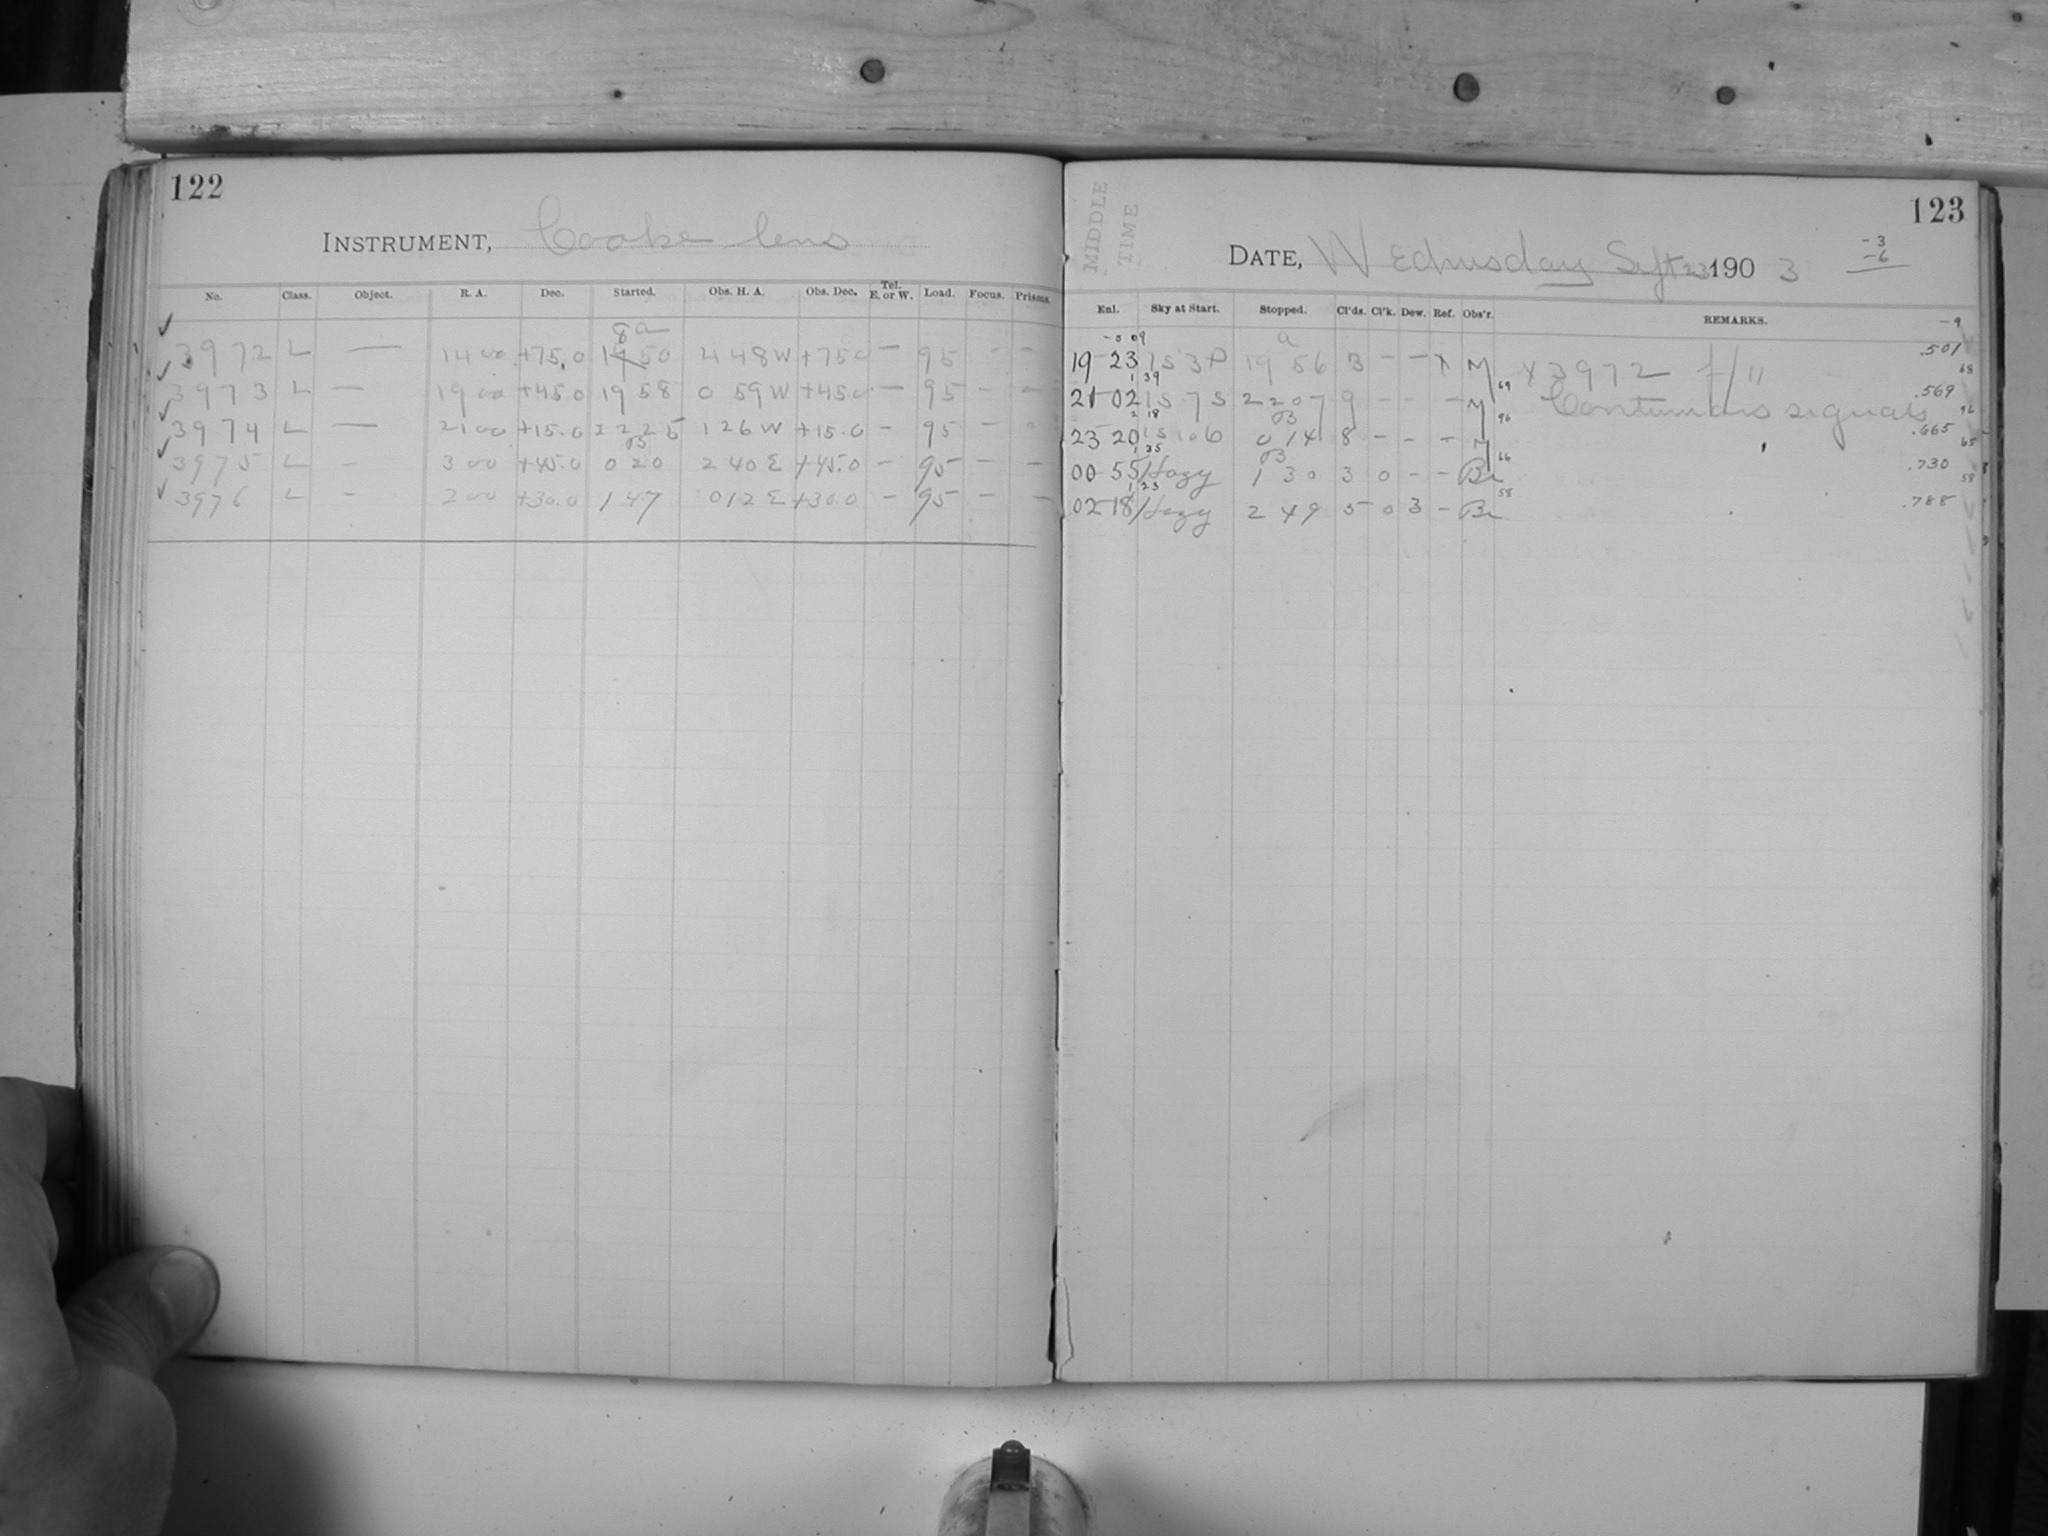 122
INSTRUMENT, Cooke lens
No. Class. Object. R. A. Dec. Started. Obs. H. A. Obs. Dec. Tel. E. or W. Load. Focus. Prisms.
8 a
3972 L — 14 00 +75.0 50 4 48 W +75 0 — 95 — —
3973 L — 19 00 +45.0 19 58 0 59 W +45.0 — 95 — —
3974 L — 21 00 +15.0 22 25 1 26 W +15.0 — 95 —
B
3975 L — 3 00 +45.0 0 20 2 40 E +45.0 — 95 — —
3976 L — 2 00 +30.0 1 47 0 12 E +30.0 — 95 — —
MIDDLE TIME
123
DATE, Wednesday Sept 23 1903
-3
-6
-9
Enl. Sky at Start. Stopped. Cl'ds. Cl'k. Dew. Ref. Obs'r. REMARKS.
-0 09 a
19 23 1S 3P 19 56 3 — — x M x 3972 f/11 .501
1 39 69 68
21 02 1S 7S 22 07 9 — — — M Continuous signals .569
2 18 B 96 96
23 20 1S 10 0 14 8 — — — M .665
1 35 B 66 65
00 55 Hazy 1 30 3 0 — — Br .730
1 23 58 58
02 18 Hazy 2 49 5 0 3 — Br .788